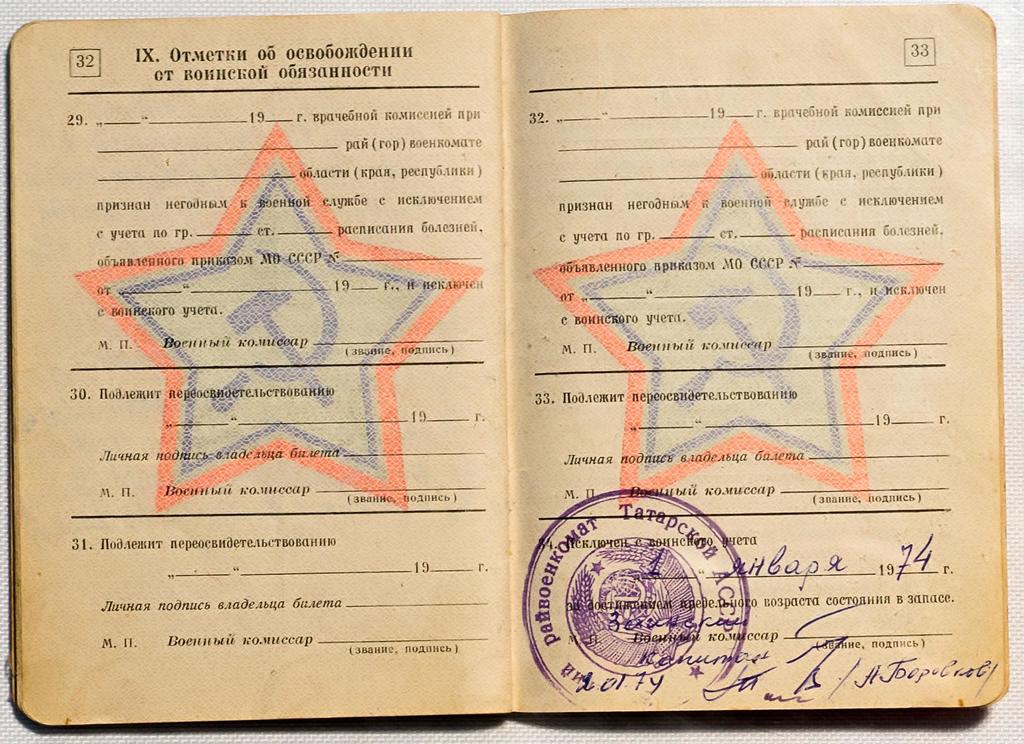 32
IX. Отметки об освобождении
от воинской обязанности
29. „____“____________19___г. врачебной комиссией при
____________ рай (гор) военкомате
____________области (края, республики)
признан негодным к военной службе с исключением
с учета по гр.______ ст.______ расписания болезней,
объявленного приказом МО СССР №____________
от „______“____________19___г., и исключен
с воинского учета.
М. П. Военный комиссар ____________
(звание, подпись)
30. Подлежит переосвидетельствованию
„____“____________19___г.
Личная подпись владельца билета____________
М. П. Военный комиссар ____________
(звание, подпись)
31. Подлежит переосвидетельствованию
„____“____________19___г.
Личная подпись владельца билета____________
М. П. Военный комиссар ____________
(звание, подпись)
33
32. „____“____________19___г. врачебной комиссией при
____________ рай (гор) военкомате
____________области (края, республики)
признан негодным к военной службе с исключением
с учета по гр.______ ст.______ расписания болезней,
объявленного приказом МО СССР №____________
от „______“____________19___г., и исключен
с воинского учета.
М. П. Военный комиссар ____________
(звание, подпись)
33. Подлежит переосвидетельствованию
„____“____________19___г.
Личная подпись владельца билета____________
М. П. Военный комиссар ____________
(звание, подпись)
34. Исключен с воинского учета
„1“ января 1974 г.
за достижением предельного возраста состояния в запасе.
М. П. Военный комиссар ____________
(звание, подпись)
капитан
2.01.74 /А Боровков/
райвоенкомат Татарской АССР